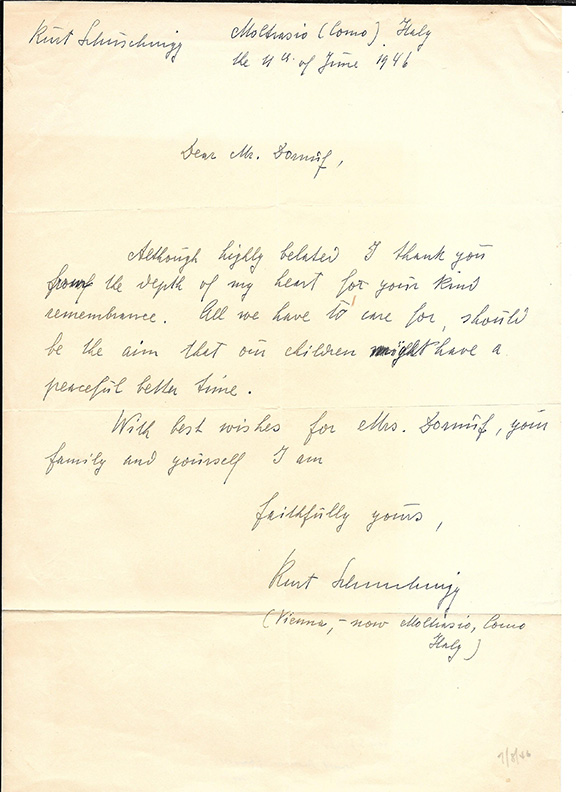 Kurt Schuschnigg
Moltrasio (Como). Italy
the 11th of June 1946
Dear Mr. Dornuf,
Although highly belated I thank you
from the depth of my heart for your kind
remembrance. All we have to care for, should
be the aim that our children might have a
peaceful better time.
With best wishes for Mrs. Dornuf, your
family and yourself I am
faithfully yours,
Kurt Schuschnigg
(Vienna, - now Moltrasio, Como
Italy)